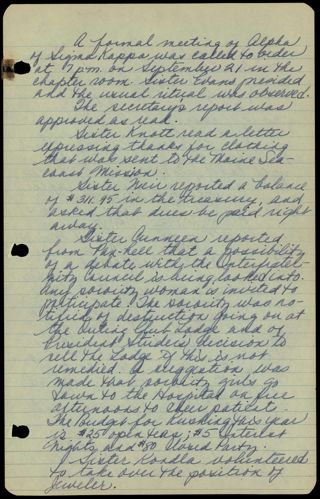 A formal meeting of Alpha
of Sigma Kappa was called to order
at 7 p.m. on September 21 in the
chapter room. Sister Evans presided
and the usual ritual was observed.
The secretary's report was
approved as read.
Sister Knott read a letter
expressing thanks for clothing
that was sent to the Maine Sea-
coast Mission.
Sister Weir reported a balance
of $311.95 in the treasury, and
asked that dues be paid right
away.
Sister
reported
from Pan-hell that a possibility
of a debate with the Interfrater-
nity Council is being looked into.
Any sorority woman is invited to
participate. The sorority was no-
tified of destruction going on at
the Outing Club Lodge and of
President Strider's decision to
sell the Lodge if this is not
remedied. A suggestion was
made that sorority girls go
down to the Hospital on
afternoons to cheer patients.
The budget for rushing this year
is $25 open tea; $5 Interest
Nights, and $50 Closed Party.
Sister
volunteered
to take over the position of
Jeweler.